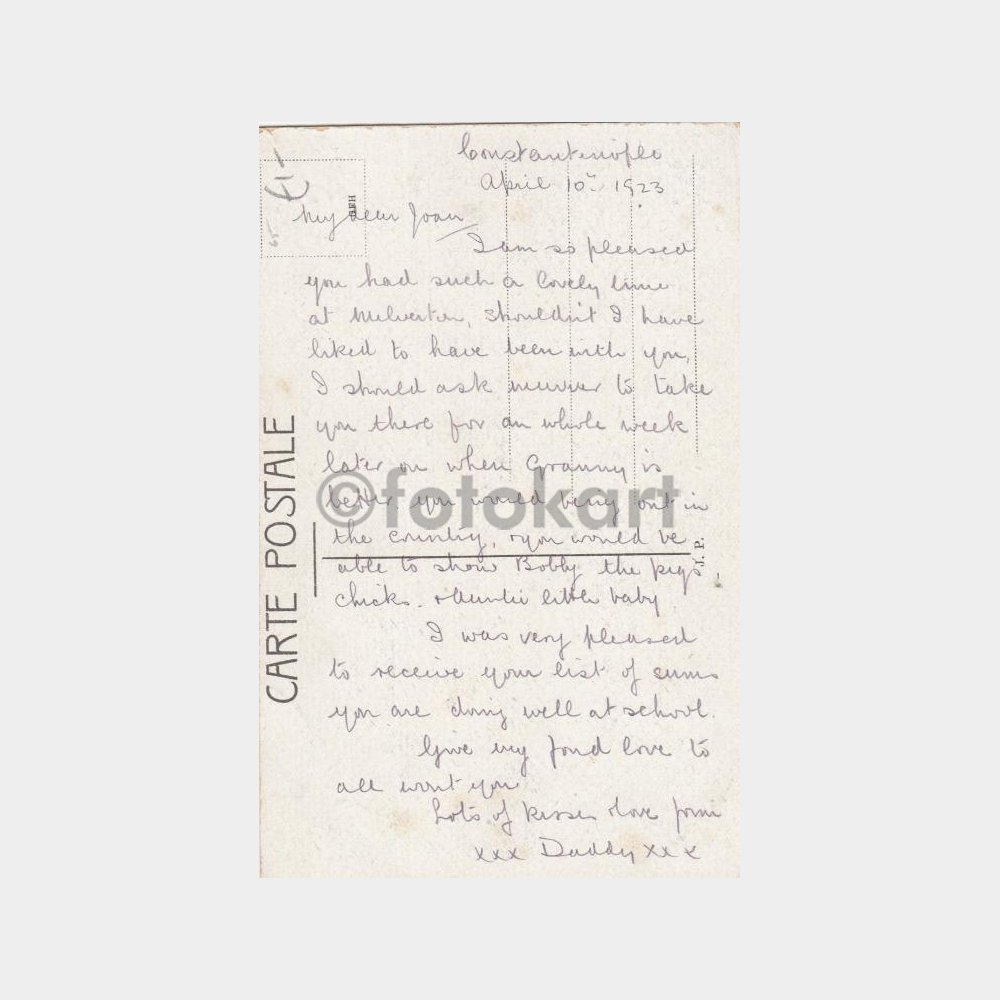 Constantinople
April 10th 1923
My dear Joan
I am so pleased
you had such a lovely time
at Milverton, shouldn't I have
liked to have been with you,
I should ask mummy to take
you there for an whole week
later on when Granny is
better you would being out in
the country, & you would be
able to show Bobby the pigs
chicks. & Auntie little baby
I was very pleased
to receive your list of sums
you are doing well at school.
Give my fond love to
all wont you
Lots of kisses & love from
xxx Daddy xxx
CARTE POSTALE
©fotokart
J. P.
£1-
65